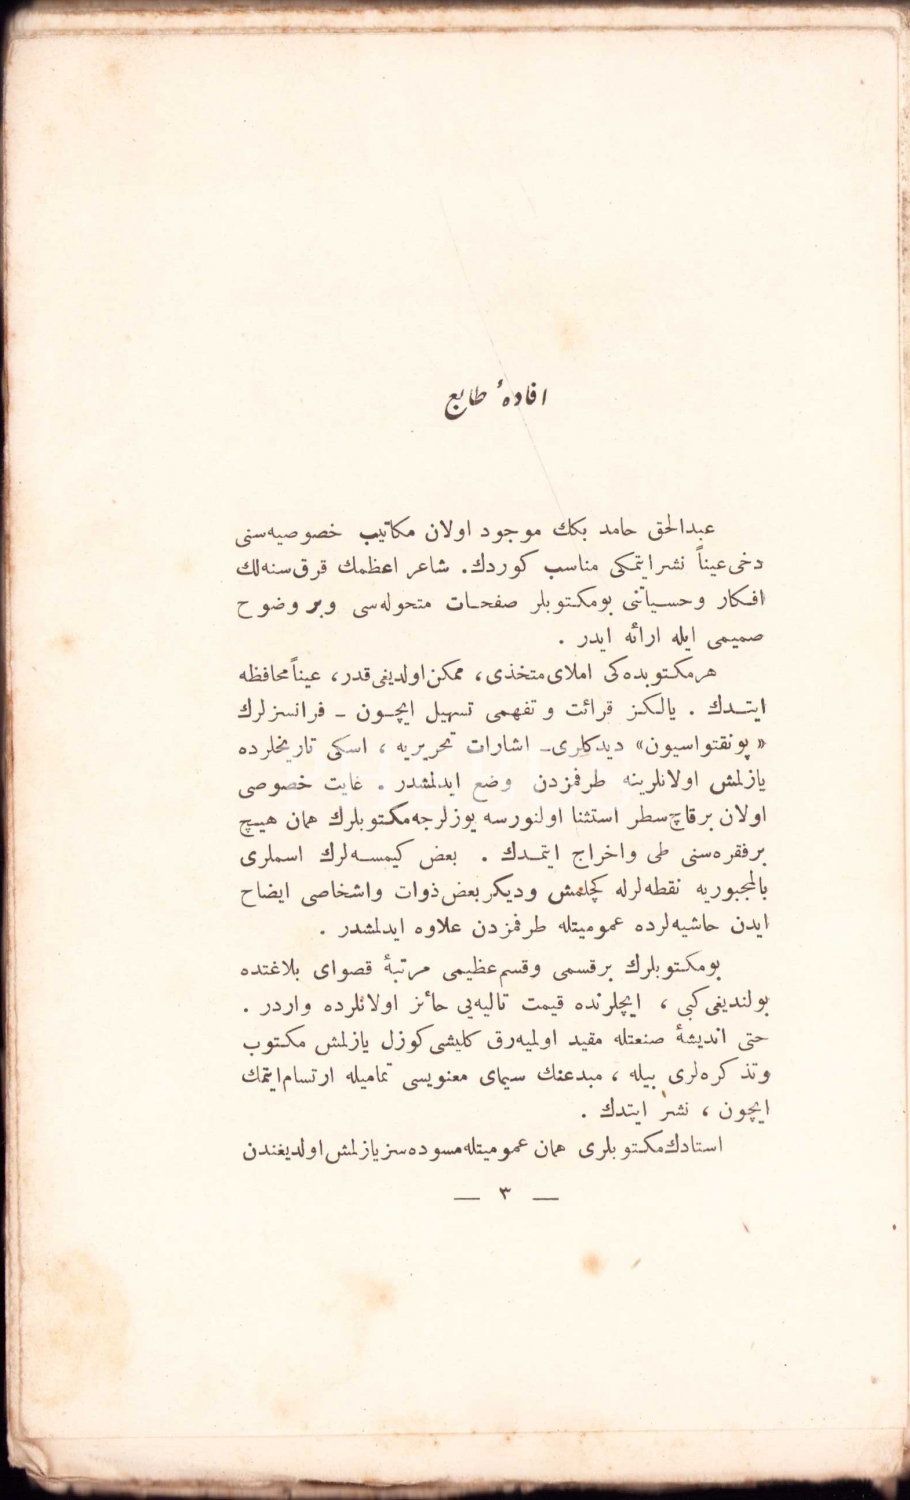 افادهٔ طابع
عبدالحق حامد بكك موجود اولان مكاتیب خصوصیه‌سنی
دخی عیناً نشر ایتمكی مناسب كوردك. شاعر اعظمك قرق سنه‌لك
افكار وحسیاتنی بومكتوبلر صفحات متحوله‌سی وبر وضوح
صمیمی ایله ارائه ایدر .
هرمكتوبده‌كی املای متخذی، ممكن اولدیغی قدر، عیناً محافظه
ایتدك . یالكز قرائت و تفهمی تسهیل ایچون ـ فرانسزلرك
« پونقتواسیون» دیدكلری ـ اشارات تحریریه ، اسكی تاریخلرده
یازلمش اولانلرینه طرفمزدن وضع ایدلمشدر . غایت خصوصی
اولان برقاچ سطر استثنا اولنورسه یوزلرجه مكتوبلرك همان هیچ
برفقره‌سنی طی واخراج ایتمدك . بعض كیمسه‌لرك اسملری
بالمجبوریه نقطه‌لرله كچلمش ودیكر بعض ذوات واشخاصی ایضاح
ایدن حاشیه‌لرده عمومیتله طرفمزدن علاوه ایدلمشدر .
بومكتوبلرك برقسمی وقسم عظیمی مرتبهٔ قصوای بلاغتده
بولندیغی كبی ، ایچلرنده قیمت تالیه‌یی حائز اولانلرده واردر .
حتی اندیشهٔ صنعتله مقید اولمیه‌رق كلیشی كوزل یازلمش مكتوب
وتذكره‌لری بیله ، مبدعنك سیمای معنویسی تمامیله ارتسام ایتمك
ایچون ، نشر ایتدك .
استادك مكتوبلری همان عمومیتله مسوده‌سز یازلمش اولدیغندن
— ٣ —